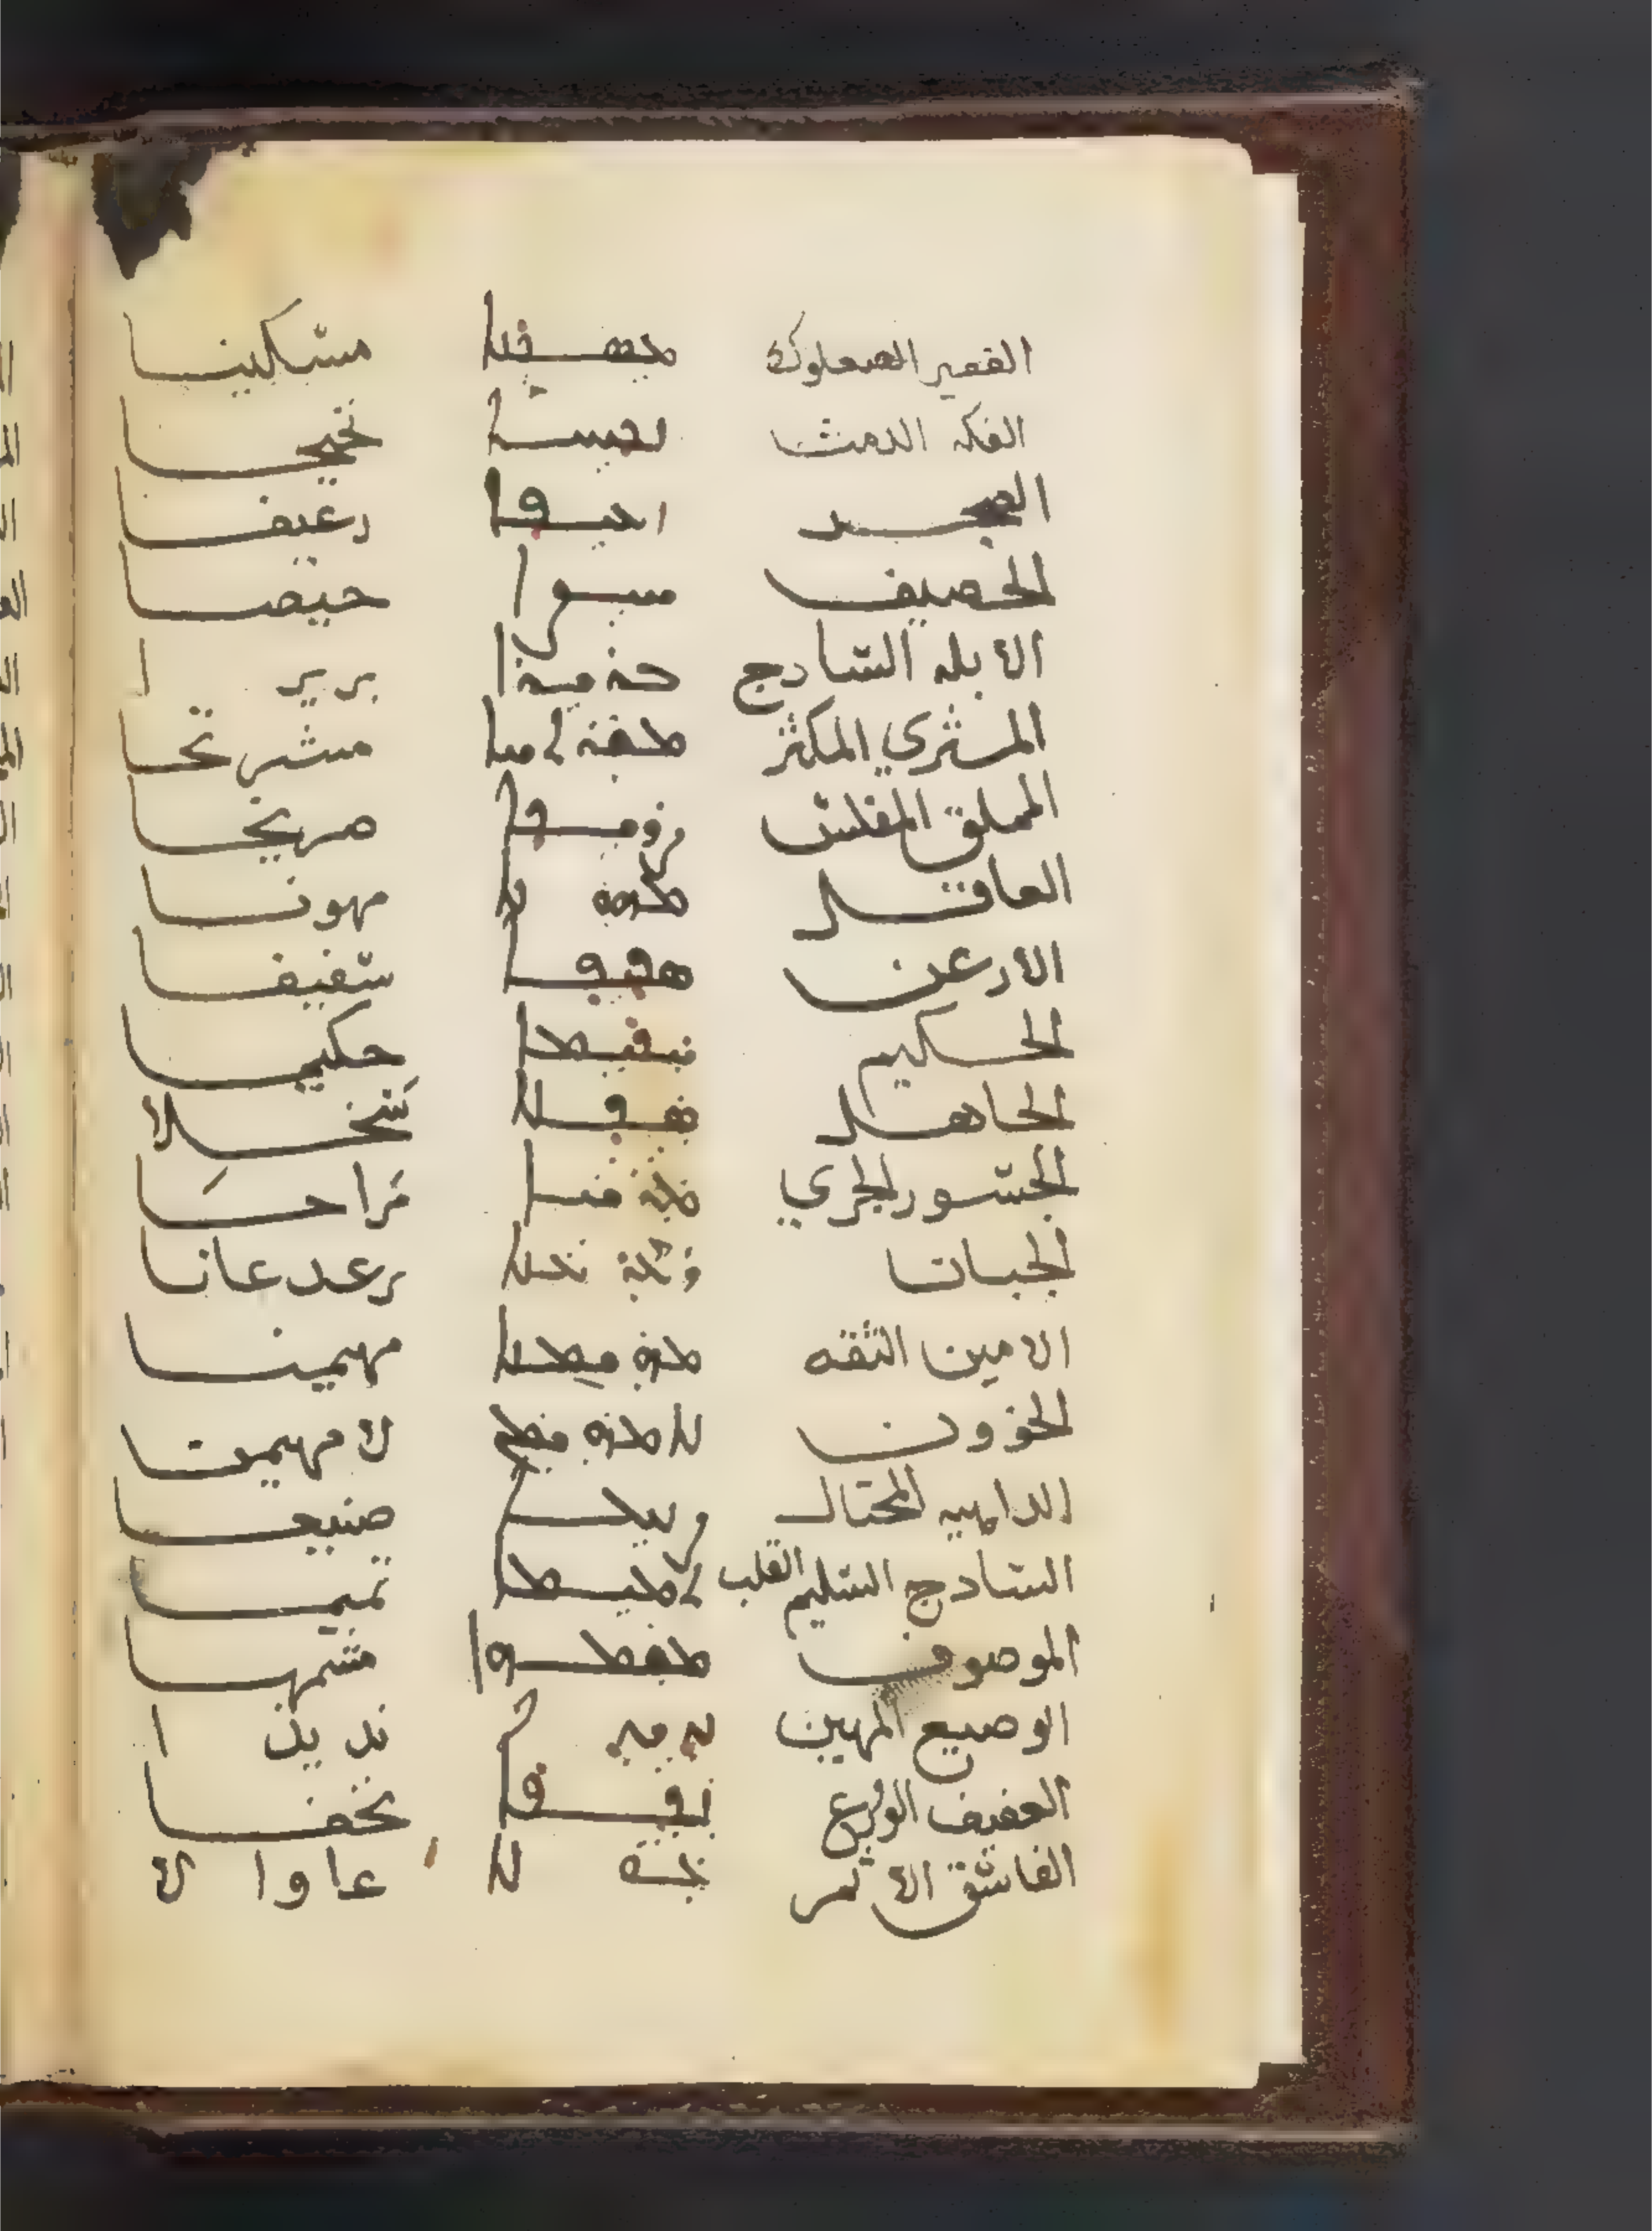 الفقير الصعلوك ܡܣܟܢܐ مسكينا
الفكه الدمث ܢܟܝܚܐ نخيحا
رعيفا
الحصيف ܚܝܨܐ حيصا
الابله الساذج ܒܪܝܪܐ بريرا
المثري المكثر مشرتحا
المملق المفلس ܨܪܝܟܐ صريخا
العاقل ܡܗܘܢܐ مهونا
الارعن سفيفا
الحكيم ܚܟܝܡܐ حكيما
الجاهل ܣܟܠܐ سخلا
الجسور الجري ܡܪܚܐ مراحا
الجبانا رعدعانا
الامين الثقه ܡܗܝܡܢܐ مهيمنا
الخوون ܠܐ ܡܗܝܡܢܐ لا مهيمنا
الداهيه المحتال ܨܢܝܥܐ صنيعا
الساذج السليم القلب ܬܡܝܡܐ تميما
الموصوف ܡܫܡܗܐ مشمها
الوضيع المهين ܢܕܝܕܐ نديدا
العفيف الورع ܢܟܦܐ نخفا
الفاسق الاثم ܥܘܠܐ عاوالا